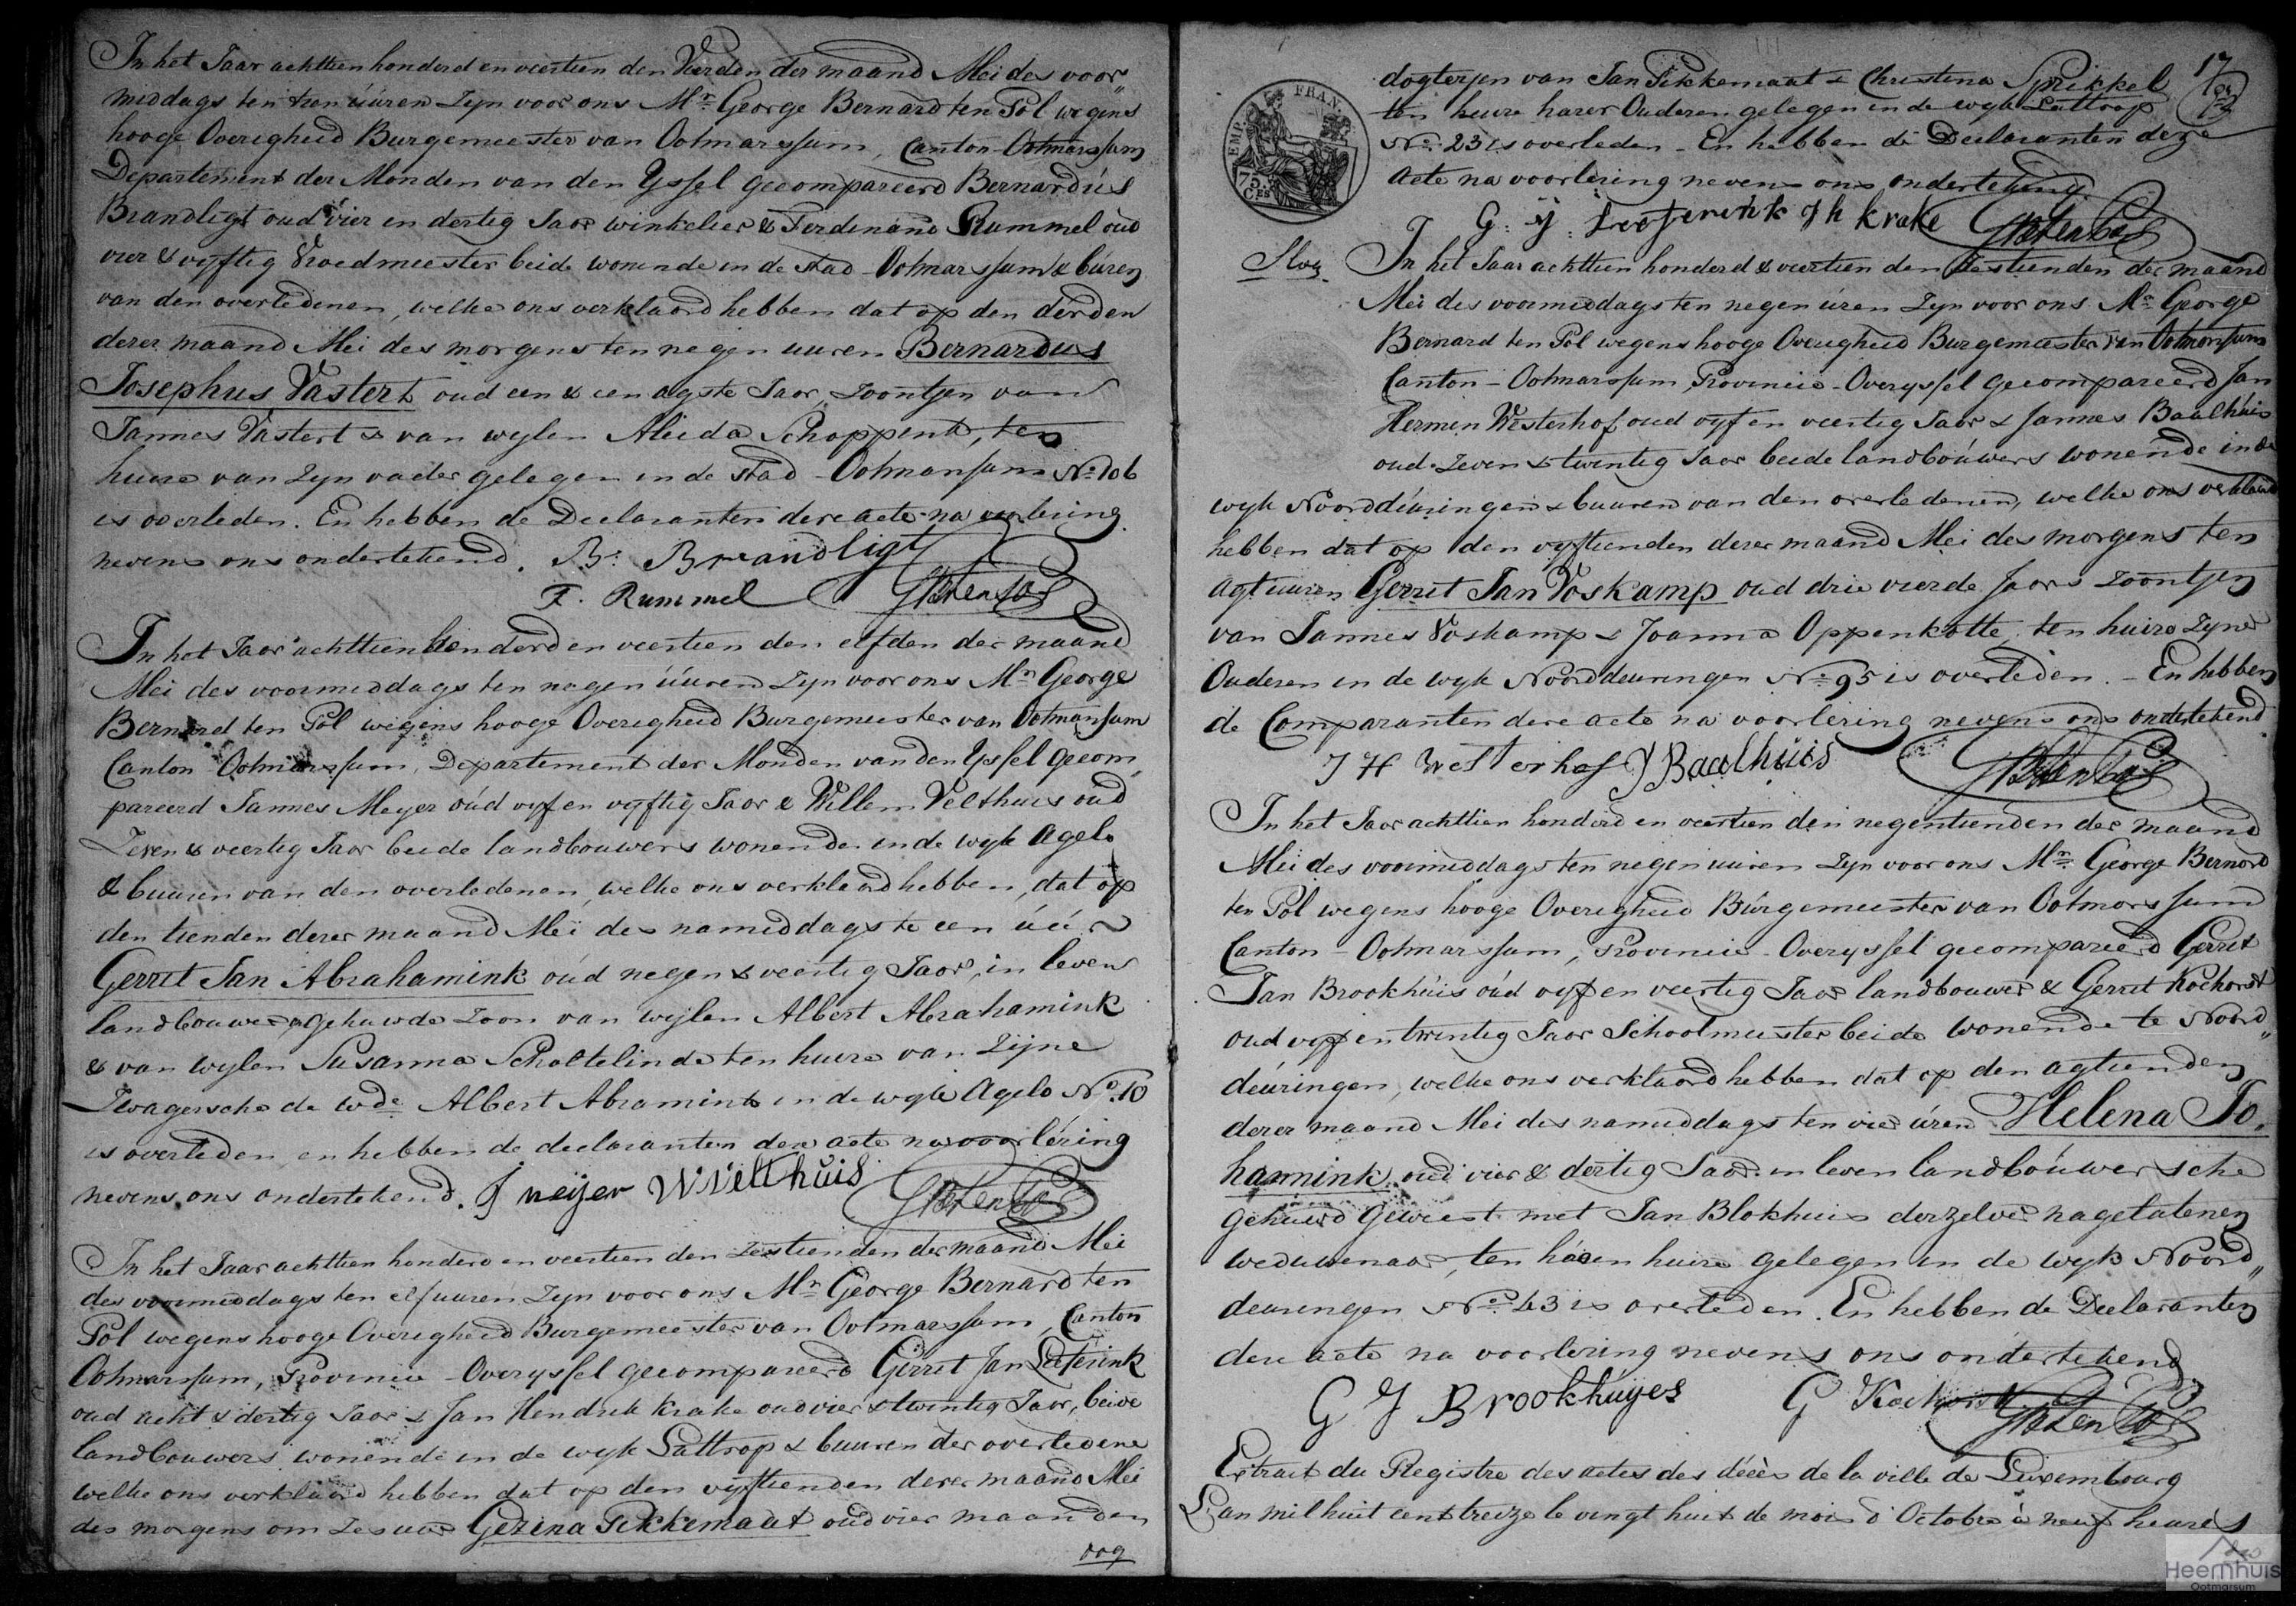 In het Jaar achttien honderd en veertien den Vierden der maand Mei des voor„
middags ten tien úúren Zyn voor ons Mr. George Bernard ten Pol wegens
hooge Overigheid Burgemeester van Ootmarssum, Canton Ootmarssum
Departement der Monden van den Yssel gecompareerd Bernardús
Brandligt oud vier en dertig Jaar winkelier & Ferdinand Rummel oud
vier & vyftig Vroedmeester beide wonende in de stad Ootmarssum & búren
van den overledenen, welke ons verklaard hebben dat op den derden
derer maand Mei des morgens ten negen uuren Bernardus
Josephus Vastert oud een & een agste Jaar, Zoontjen van
Jannes Vastert & van wylen Aleida Schoppink, ten
huize van zyn vader gelegen in de stad Ootmarssum No. 106
is overleden. En hebben de Declaranten deze acte na voorlezing
nevens ons ondertekend. B: Brandligt
F. Rummel GBtenPol
In het Jaar achttien honderd en veertien den elfden der maand
Mei des voormiddags ten negen úúren Zyn voor ons Mr. George
Bernard ten Pol wegens hooge Overigheid Burgemeester van Ootmarssum
Canton Ootmarssum, Departement der Monden van den Yssel gecom„
pareerd Jannes Meyer oúd vyf en vyftig Jaar & Willem Velthuis oud
Zeven & veertig Jaar beide landbouwers wonende in de wyk Agelo
& buuren van den overledenen, welke ons verklaard hebben, dat op
den tienden derer maand Mei des namiddags te een úúr
Gerrit Jan Abrahamink oúd negen & veertig Jaar, in leven
landbouwer gehuwde Zoon van wijlen Albert Abrahamink
& van wylen Susanna Scholtelinde ten huize van Zijne
Zwagersche de wde. Albert Abramink in de wyk Agelo No. 10
is overleden, en hebben de declaranten deze acte na voorlezing
nevens ons ondertekend. J meijer W Velthuis GBtenPol
In het Jaar achttien honderd en veertien den zestienden der maand Mei
des voormiddags ten elf uuren Zyn voor ons Mr. George Bernard ten
Pol wegens hooge Overigheid Burgemeester van Ootmarssum, Canton
Ootmarssum, Provincie Overyssel gecompareerd Gerrit Jan Leferink
oud acht & dertig Jaar & Jan Hendrik Krake oud vier & twintig Jaar, beide
landbouwers wonende in de wyk Lattrop & buuren der overledene
welke ons verklaard hebben dat op den vyftienden derer maand Mei
des morgens om Zes uur Gezina Pikkemaat oud vier maanden
dog
17
dogterjen van Jan Pikkemaat & Christina Sprikkel
ten huize harer Ouderen gelegen in de wyk Lattrop
No. 23 is overleden. En hebben de Declaranten deze
acte na voorlezing nevens ons ondertekend
EMP. FRAN.
75 Ces
G: J: Leeferenk J h krake GBtenPol
In het Jaar achttien honderd & veertien den Zestienden der maand
Mei des voormiddags ten negen úren Zyn voor ons Mr. George
Bernard ten Pol wegens hooge Overigheid Burgemeester van Ootmarssum
Canton Ootmarssum, Provincie Overyssel gecompareerd Jan
Hermen Westerhof oud vyf en veertig Jaar & Jannes Baalhúis
oud Zeven & twintig Jaar beide landbóúwers wonende in de
wyk Noorddúúringen & buuren van den overledenen, welke ons verklaard
hebben dat op den vyftienden derer maand Mei des morgens ten
agt uuren Gerrit Jan Voskamp oud drie vierde Jaars Zoontjen
van Jannes Voskamp & Joanna Oppenkotte, ten huize Zyner
Ouderen in de wyk Noorddeuringen No. 95 is overleden. En hebben
de Comparanten deze acte na voorlezing nevens ons ondertekend
J H Westerhof J Baalhuis GBtenPol
In het Jaar achttien honderd en veertien den negentienden der maand
Mei des voormiddags ten negen uuren Zyn voor ons Mr. George Bernard
ten Pol wegens hooge Overigheid Búrgemeester van Ootmarssum
Canton Ootmarssum, Provincie Overyssel gecompareerd Gerrit
Jan Brookhúis oúd vyf en veertig Jaar landbouwer & Gerrit Kockorst
oud vyf en twintig Jaar Schoolmeester beide wonende te Noord„
deúringen, welke ons verklaard hebben dat op den agtienden
derer maand Mei des namiddags ten vier úren Helena Jo„
hannink oud vier & dertig Jaar in leven landbóuwersche
gehuwd geweest met Jan Blokhuis derzelver nagelatenen
weduwenaar, ten haren huize gelegen in de wyk Noord„
deuringen No. 43 is overleden. En hebben de Declaranten
deze acte na voorlezing nevens ons ondertekend
G J Brookhuijes G Kockorst GBtenPol
Extrait du Registre des actes des décès de la ville de Luxembourg
L'an mil huit cent treize le vingt huit de mois d'Octobre à neuf heures
Heemhuis
Ootmarsum